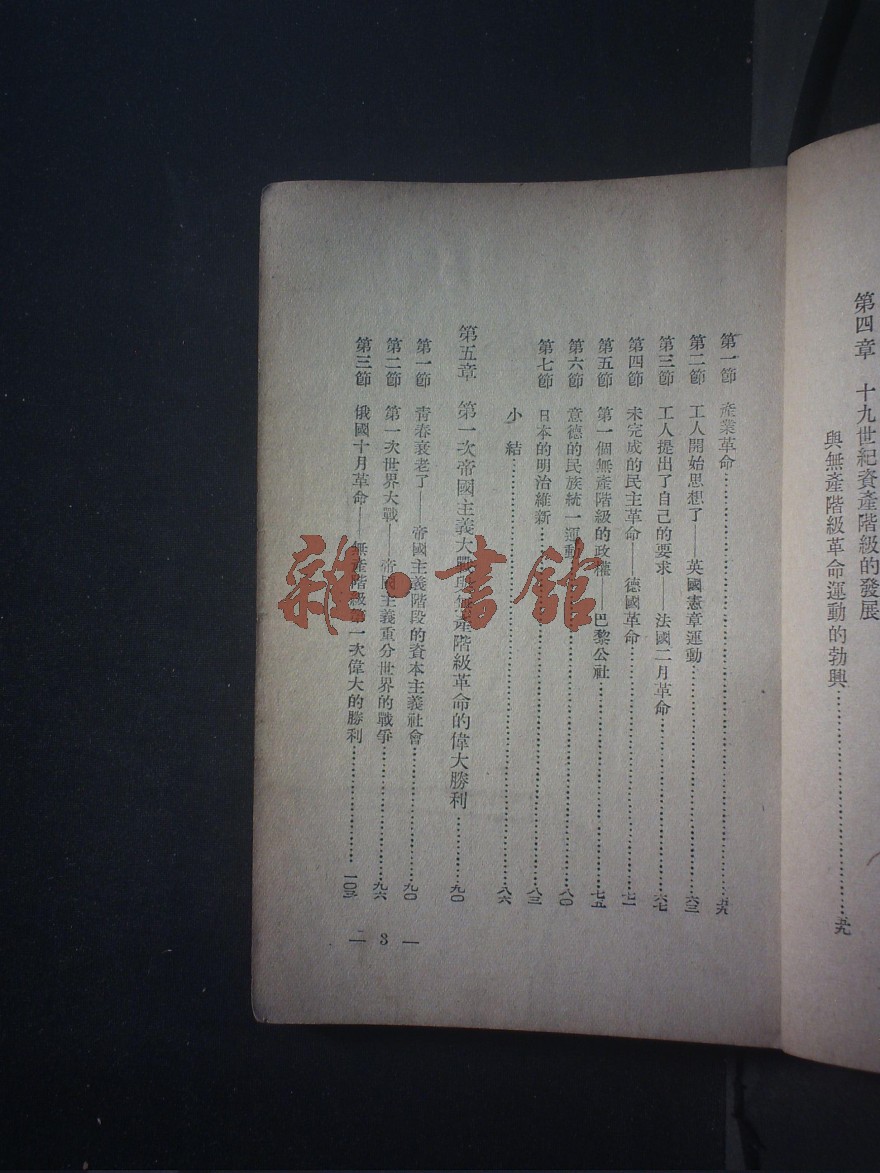 第四章　十九世紀資產階級的發展
與無產階級革命運動的勃興……五九
第一節　產業革命……五九
第二節　工人開始思想了——英國憲章運動……六三
第三節　工人提出了自己的要求——法國二月革命……六七
第四節　未完成的民主革命——德國革命……七一
第五節　第一個無產階級的政權——巴黎公社……七五
第六節　意德的民族統一運動……八〇
第七節　日本的明治維新……八三
小　結……八六
第五章　第一次帝國主義大戰與無產階級革命的偉大勝利……九〇
第一節　青春衰老了——帝國主義階段的資本主義社會……九〇
第二節　第一次世界大戰——帝國主義重分世界的戰爭……九六
第三節　俄國十月革命——無產階級第一次偉大的勝利……
— 3 —
雜·書館